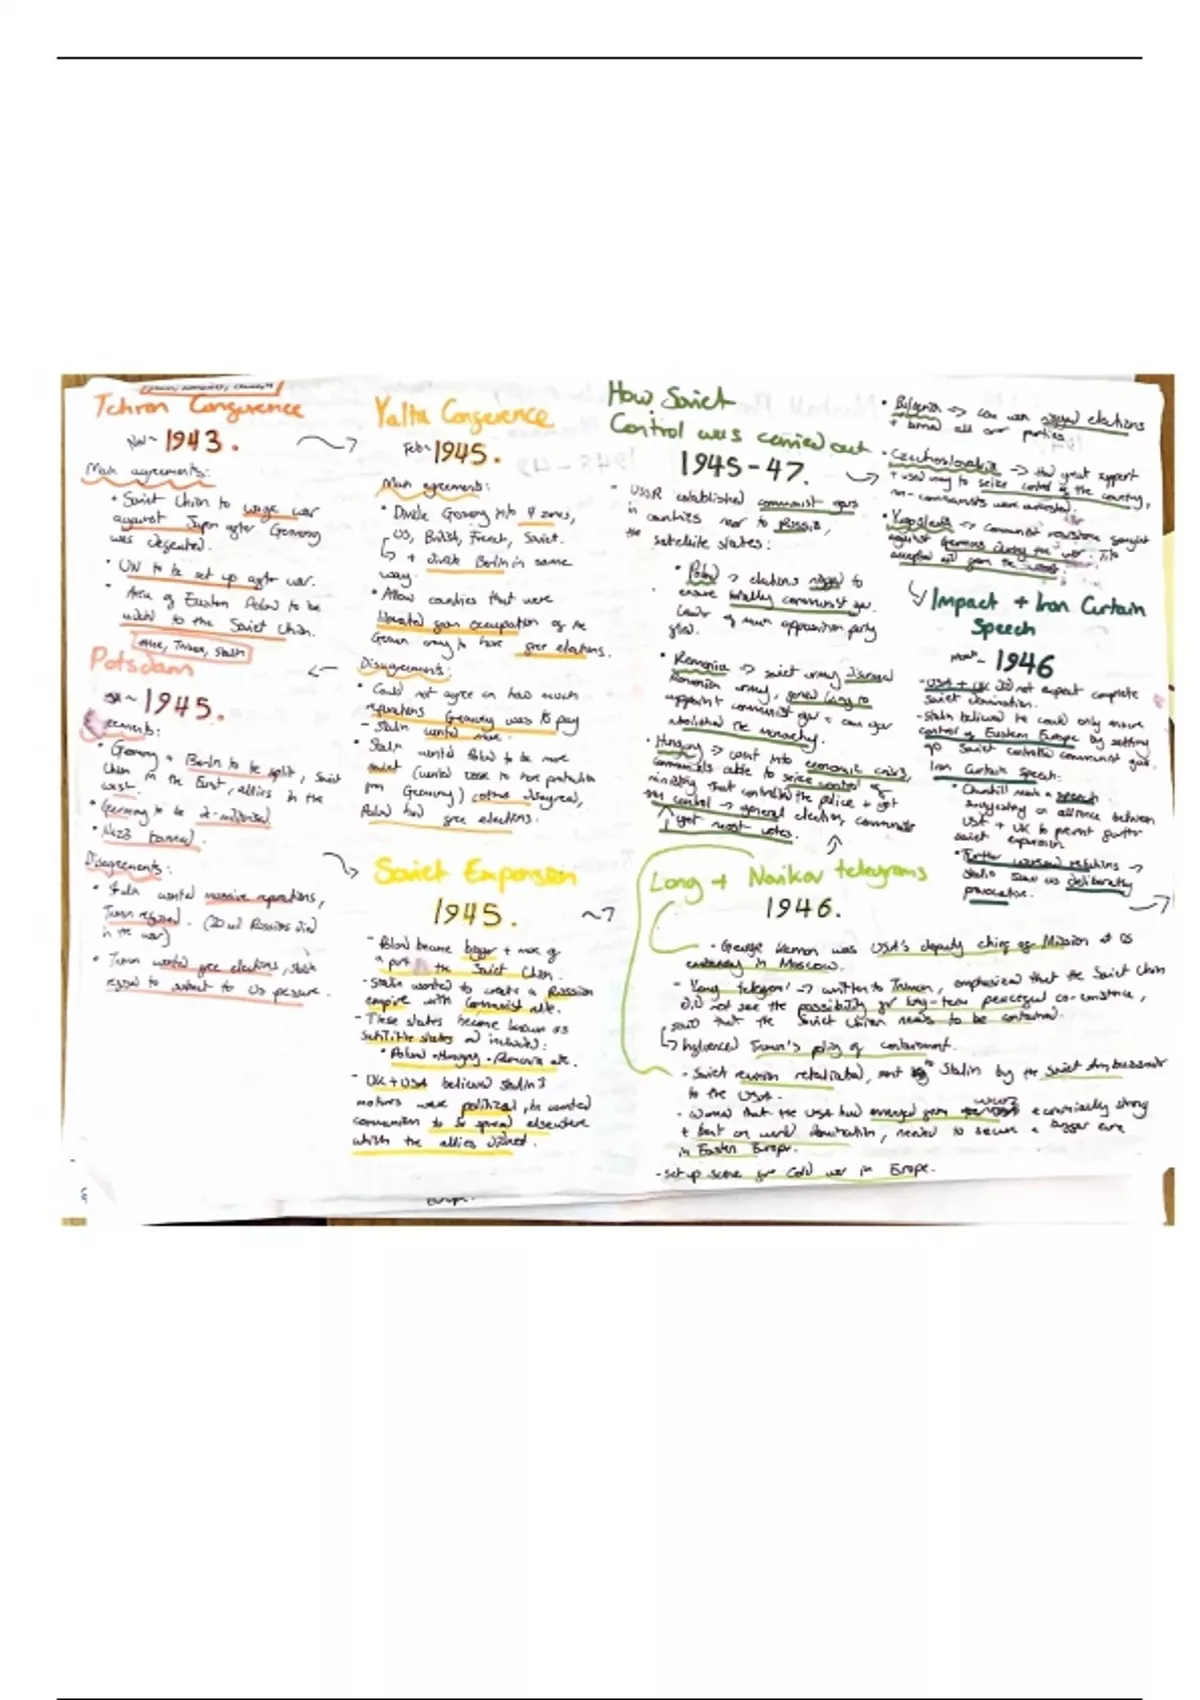 Tehran Conference
Nov~ 1943.
Main agreements:
• Soviet Union to wage war
against Japan after Germany
was defeated.
• UN to be set up after war.
• Area of Eastern Poland to be
added to the Soviet Union.
Attlee, Truman, Stalin
Potsdam
1945.
• Germany + Berlin to be split, Soviet
Union in the East, allies in the
west.
• Germany to be de-militarised
• Nazis banned.
Disagreements:
• Stalin wanted massive reparations,
Truman refused. (20 mil Russians died
in the war)
• Truman wanted free elections, Stalin
refused to submit to US pressure.
Yalta Conference
Feb~ 1945.
Main agreements:
• Divide Germany into 4 zones,
US, British, French, Soviet.
↳ + divide Berlin in same
way.
• Allow countries that were
liberated from occupation of the
German army to have free elections.
Disagreements:
• Could not agree on how much
reparations Germany was to pay
- Stalin wanted more.
• Stalin wanted Poland to be more
soviet (wanted to have protection
from Germany) others disagreed,
Poland had free elections.
Soviet Expansion
1945.
- Poland became bigger + more of
a part the Soviet Union.
- Stalin wanted to create a Russian
empire with Communist rule.
- These states became known as
satellite states and included:
• Poland • Hungary • Romania etc.
- UK + USA believed Stalin's
motives were political, he wanted
communism to spread elsewhere
which the allies disliked.
How Soviet
Control was carried out
1945-47.
- USSR established communist govs
in countries near to Russia,
the satellite states:
• Poland → elections rigged to
ensure totally communist gov.
Leader of main opposition party
fled.
• Romania → soviet army disarmed
Romanian army, forced king to
appoint communist gov + com gov
abolished the monarchy.
• Hungary → went into economic crisis,
communists able to seize control of
ministry that controlled the police + got
control → general election, communists
got most votes.
• Bulgaria → com won rigged elections
+ banned all other parties.
• Czechoslovakia → had great support
+ used army to seize control of the country,
non-communists were arrested.
• Yugoslavia → communist resistance fought
against Germans during the war. Tito
Impact + Iron Curtain
Speech
1946
- USA + UK did not expect complete
Soviet domination.
- Stalin believed he could only ensure
control of Eastern Europe by setting
up Soviet controlled communist govs.
Iron Curtain Speech:
• Churchill made a speech
suggesting an alliance between
USA + UK to prevent further
soviet expansion
• Further worsened relations →
Stalin saw as deliberately
provocative.
Long + Novikov telegrams
1946.
- George Kennan was USA's deputy chief of Mission at US
embassy in Moscow.
- 'Long telegram' → written to Truman, emphasised that the Soviet Union
did not see the possibility for long-term peaceful co-existence,
said that the Soviet Union needs to be contained.
↳ Influenced Truman's policy of containment.
- Soviet reunion retaliated, sent to Stalin by the Soviet Ambassador
to the USA.
- Warned that the USA had emerged from WW2 economically strong
+ bent on world domination, needed to secure a bigger
in Eastern Europe.
- set up scene for Cold war in Europe.